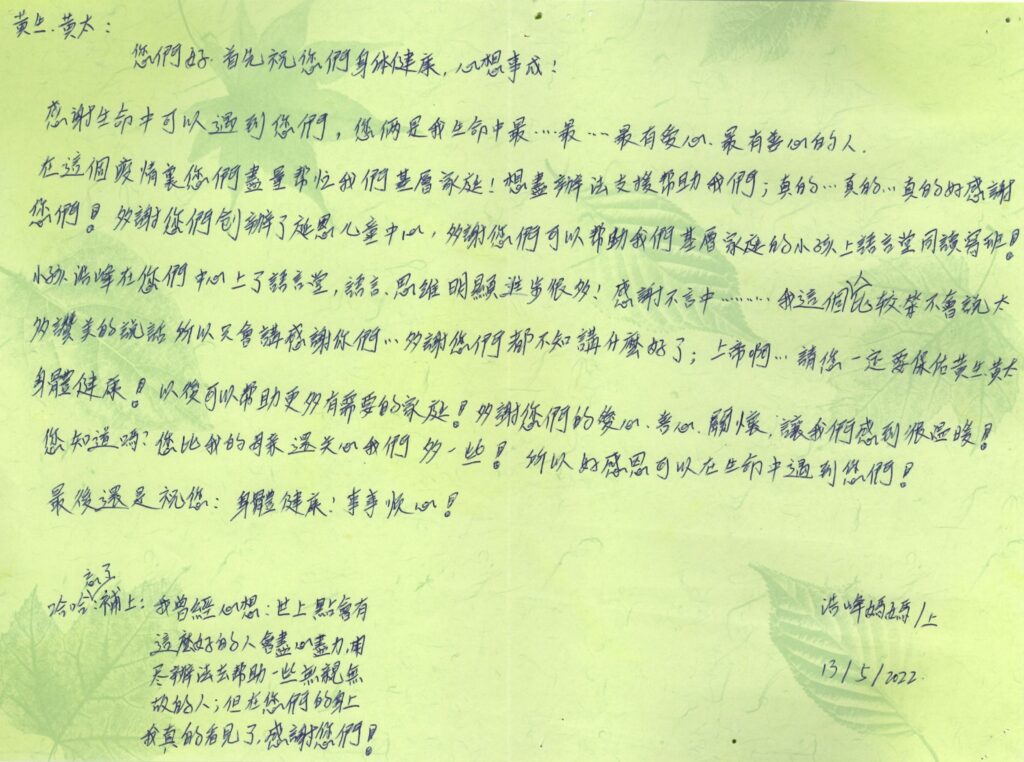 黄生.黄太：
您們好.首先祝您們身体健康，心想事成！
感謝生命中可以遇到您們，您俩是我生命中最……最……最有愛心.最有善心的人.
在這個疫情裏您們盡量帮忙我們基層家庭！想盡辦法支援帮助我們；真的…真的…真的好感謝
您們！多謝您們创辦了延思儿童中心，多謝您們可以帮助我們基層家庭的小孩上語言堂同讀寫班！
小孩浩峰在您們中心上了語言堂，語言、思維明顯進步很多！感謝不言中………我這個人比较笨不會說太
多讚美的說話所以只會講感謝你們…多謝您們都不知講什麼好了；上帝啊…請您一定要保佑黄生.黄太
身體健康！以後可以帮助更多有需要的家庭！多謝您們的愛心、善心、關懷，讓我們感到很温暖！
您知道嗎？您比我的親还关心我們多一些！所以好感恩可以在生命中遇到您們！
最後還是祝您：身體健康！事事顺心！
哈哈：忘了補上：我曾經心想：世上點會有
這麼好的人會盡心盡力，用
尽辦法去帮助一些無親無
故的人；但在您們的身上
我真的看見了，感謝您們！
浩峰媽媽/上
13/5/2022.